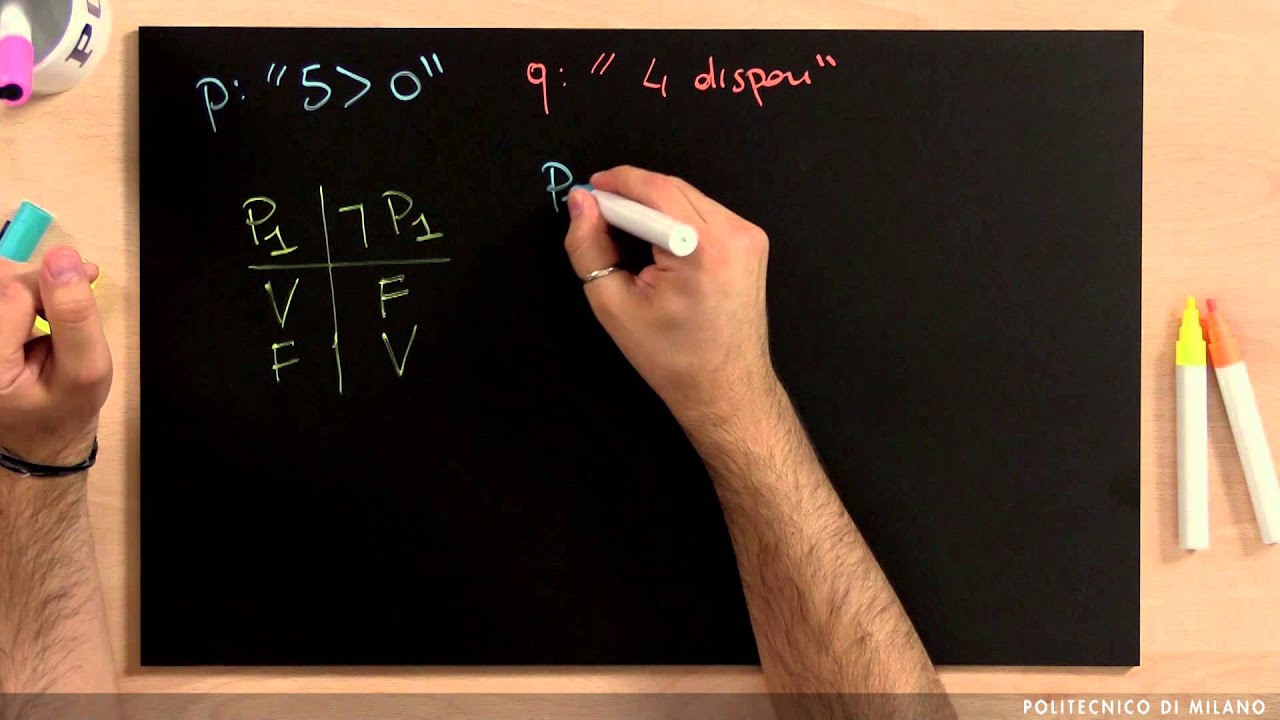 p: "5>0" q: " 4 dispari"
P1 ¬P1
V F
F V
P
POLITECNICO DI MILANO